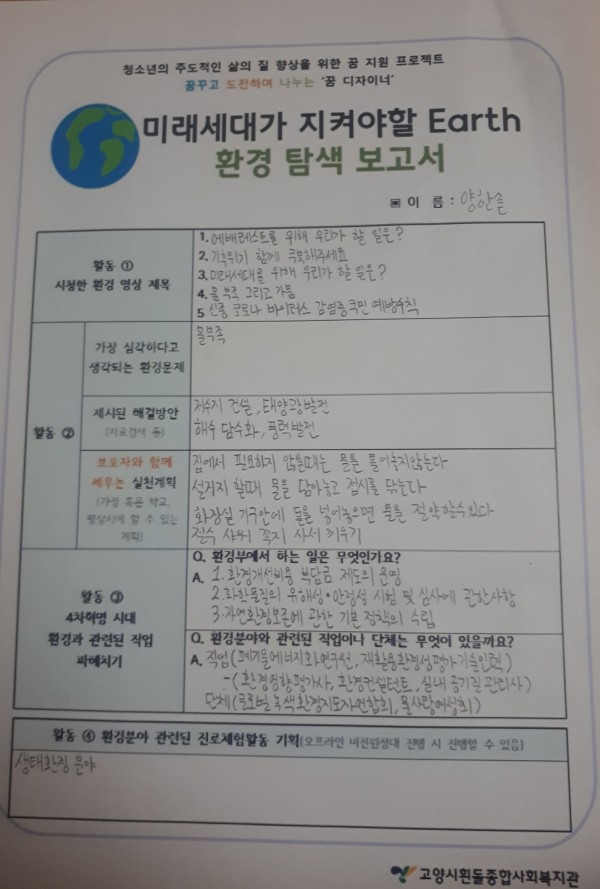 청소년의 주도적인 삶의 질 향상을 위한 꿈 지원 프로젝트
꿈꾸고 도전하며 나누는 '꿈 디자이너'
미래세대가 지켜야할 Earth
환경 탐색 보고서
▣ 이 름 : 양한솔
활동 ①
시청한 환경 영상 제목
1. 에베레스트를 위해 우리가 할 일은?
2. 기후위기 함께 극복해주세요
3. 미래세대를 위해 우리가 할 일은?
4. 물 부족 그리고 가뭄
5 신종 코로나 바이러스 감염증 국민 예방수칙
활동 ②
가장 심각하다고
생각되는 환경문제
물부족
제시된 해결방안
(자료검색 등)
저수지 건설, 태양광발전
해수 담수화, 풍력발전
보호자와 함께
세우는 실천계획
(가정 혹은 학교,
평상시에 할 수 있는
계획)
집에서 필요하지 않을때는 물을 틀어놓지않는다
설거지 할때 물을 담아놓고 접시를 닦는다
화장실 기구안에 돌을 넣어놓으면 물을 절약할수있다
절수 샤워 꼭지 사서 끼우기
활동 ③
4차혁명 시대
환경과 관련된 직업
파헤치기
Q. 환경부에서 하는 일은 무엇인가요?
A. 1. 환경개선비용 부담금 제도의 운영
2. 화학물질의 유해성·안정성 시험 및 심사에 관한사항
3. 자연환경보존에 관한 기본 정책의 수립
Q. 환경분야와 관련된 직업이나 단체는 무엇이 있을까요?
A. 직업(폐기물에너지화연구원, 재활용환경성평가기술인력)
-(환경영향평가사, 환경컨설턴트, 실내 공기질 관리사)
단체(글로벌 녹색환경지도자연합회, 물사랑여성회)
활동 ④ 환경분야 관련된 진로체험활동 기획(오프라인 비전원정대 진행 시 진행될 수 있음)
생태환경 분야
고양시흰돌종합사회복지관